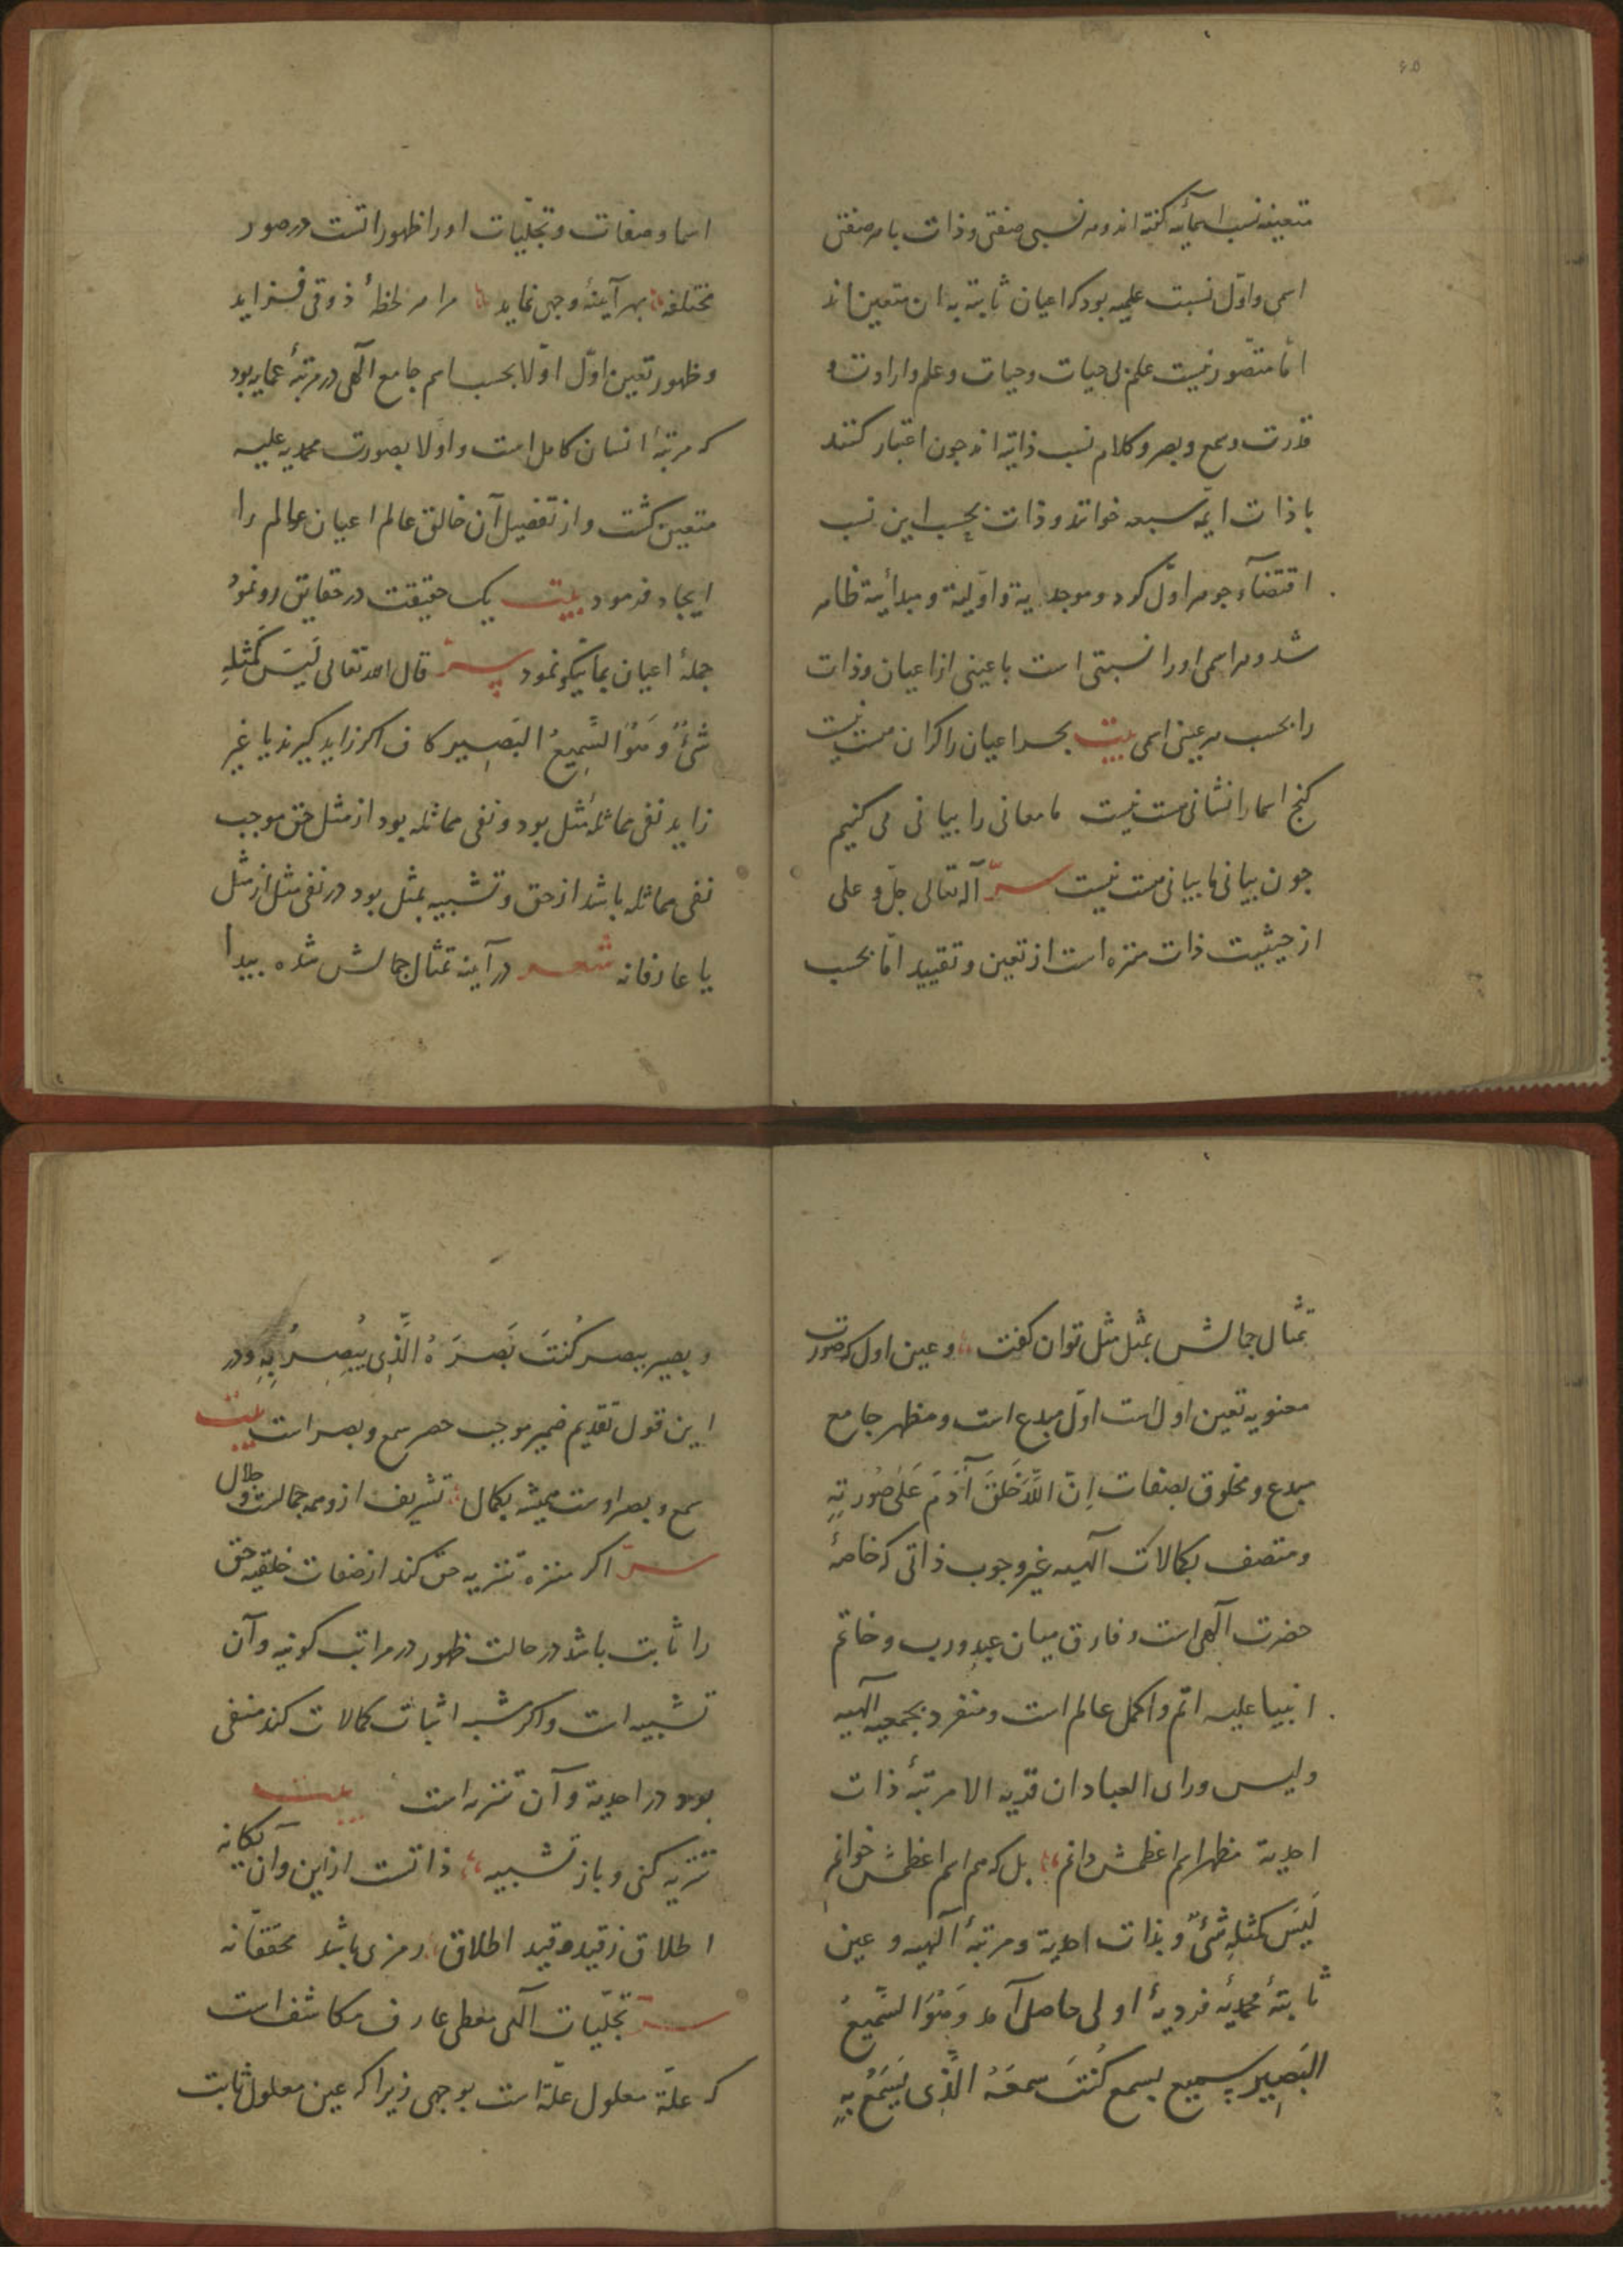 ۶۵
متعینه نسب اسمائیه گفته اند و هر نسبی صفتی و ذات با هر صفتی
اسمی و اول نسبت علمیه بود که اعیان ثابته به ان متعین اند
امّا متصوّر نیست علم بی حیات و حیات و علم و ارادت و
قدرت و سمع و بصر و کلام نسب ذاتیه اند چون اعتبار کنند
با ذات ایمّه سبعه خوانند و ذات بحسب این نسب
اقتضآء جوهر اوّل کرد و موجدیة و اوّلیة و مبدأیة ظاهر
شد و هر اسمی او را نسبتی است با عینی از اعیان و ذات
را بحسب هر عینی اسمی بیت بحر اعیان را کران هست نیست
کنج اسما را نشانی هست نیست ما معانی را بیانی می کنیم
چون بیانی با بیانی هست نیست سرّ آله تعالی جلّ و علی
از حیثیت ذات منزه است از تعین و تقیید امّا بحسب
اسما و صفات و تجلّیات او را ظهوراتست در صور
مختلفه بهر آینهٔ وجهی نماید مرا هر لحظهٔ ذوقی فزاید
و ظهور تعین اوّل اوّلا بحسب اسم جامع آلهی در مرتبهٔ عمایه بود
که مرتبهٔ انسان کامل است و اوّلا بصورت محمدیه علیه
متعین کشت و از تفصیل آن خالق عالم اعیان عالم را
ایجاد فرمود بیت یک حقیقت در حقایق رو نمود
جملهٔ اعیان بما نیکو نمود سرّ قال الله تعالی لَیسَ کَمِثلِهِ
شَیٌٔ وَ هُوَ السَّمِیعُ البَصِیر کاف اکر زاید کیرند یا غیر
زاید نفی مماثلهٔ مثل بود و نفی مماثله بود از مثل حق موجب
نفی مماثله باشد از حق و تشبیه بمثل بود در نفی مثل از مثل
یا عارفانه شعر در آینه تمثال جمالش شده پیدا
تمثال جمالش بمثل مثل توان کفت و عین اول که صورت
معنویه تعین اول است اوّل مبدع است و مظهر جامع
مبدع و مخلوق بصفات اِنَّ اللّٰهَ خَلَقَ آدَمَ عَلَی صُورَتِهِ
و متصف بکمالات آلهیه غیر وجوب ذاتی که خاصهٔ
حضرت آلهی است و فارق میان عبد و رب و خاتم
انبیا علیه اتم و اکمل عالم است و منفرد بجمعیه الهیه
ولیس ورای العبادان قریه الا مرتبهٔ ذات
احدیة مظهر اسم اعظمش دانم بل که هم اسم اعظمش خوانم
لَیسَ کَمِثلِهِ شَیٌٔ و بذات احدیة و مرتبهٔ آلهیه و عین
ثابتهٔ محمدیهٔ فردیهٔ اولی حاصل آمد وَ هُوَ السَّمِیعُ
البَصِیر سمیع بسمع کُنتَ سمعَهُ الَّذِی یَسمَعُ بِهِ
و بصیر ببصر کُنتَ بَصَرَهُ الَّذِی یُبصِرُ بِهِ و در
این قول تقدیم ضمیر موجب حصر سمع و بصر است بیت
سمع و بصر اوست همیشه بکمال تشریف ازو همه جمالست و جلال
سرّ اکر منزه تنزیه حق کند از صفات خلقیه حق
را ثابت باشد در حالت ظهور در مراتب کونیه و آن
تشبیه است و اکر مشبه اثبات کمالات کند منفی
بود در احدیة و آن تنزیه است بیت
تنزیه کنی و باز تشبیه ذاتست از این و آن یکانه
اطلاق ز قید و قید اطلاق رمزی باشد محققانه
سرّ تجلّیات آلهی معطی عارف مکاشف است
که علّة معلول علّة است بوجهی زیرا که عین معلول ثابت